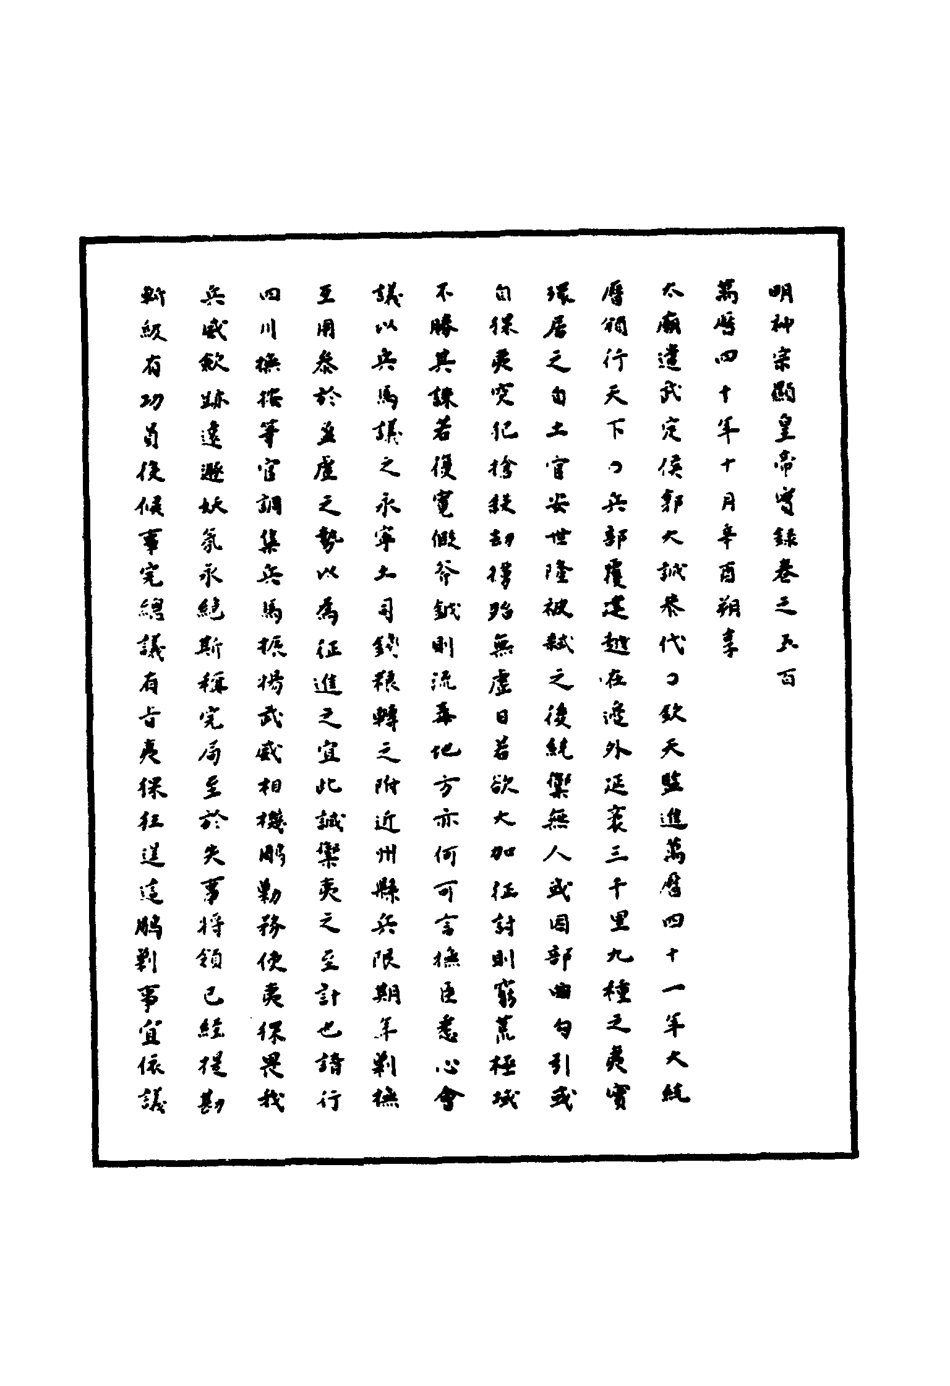 明神宗顯皇帝實錄卷之五百
萬曆四十年十月辛酉朔享
太廟遣武定侯郭大誠恭代〇欽天監進萬曆四十一年大統
曆頒行天下〇兵部覆建越在邊外延袤三千里九種之夷實
環居之自土官安世隆被弒之後統禦無人或因部曲勾引或
自保夷突犯搶絲劫擄殆無虛日若欲大加征討則窮荒極域
不勝其誅若復寬假斧鉞則流毒地方亦何可言撫臣悉心會
議以兵馬議之永寧土司錢糧轉之附近州縣兵限期年剿撫
互用參於盈虛之勢以為征進之宜此誠禦夷之至計也請行
四川撫按等官調集兵馬振揚武威相機鵰勦務使夷保畏我
兵威斂跡遠遯妖氛永絕斯稱完局至於失事將領已經提勘
斬級有功員役候事完總議有旨夷保狂逞這鵰剿事宜依議